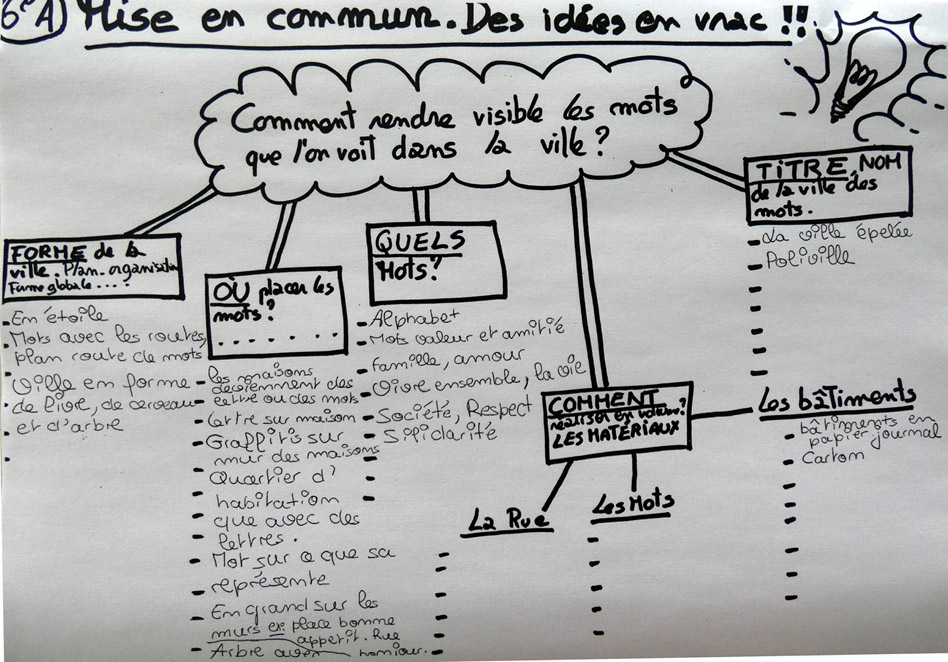 6e A) Mise en commun. Des idées en vrac !!
Comment rendre visible les mots
que l'on voit dans la ville ?
TITRE, NOM
de la ville des
mots.
- La ville épelée
- Poliville
FORME de la
ville. Plan. organisation
Forme globale... ?
- En étoile
- Mots avec les routes,
plan route de mots
- Ville en forme
- de livre, de cerveau
- et d'arbre
OÙ placer les
mots ?
. . . . . . .
- les maisons
deviennment des
lettre ou des mots
- lettre sur maison
- Graffitis sur
mur des maisons
- Quartier d'
habitation
que avec des
lettres.
- Mot sur ce que sa
- représente
- En grand sur les
murs ex place bomme
appetit. Rue
- Arbre avec
QUELS
Mots ?
- Alphabet
- Mots valeur et amitié
- famille, amour
- Vivre ensemble, la vie
- Société, Respect
- Silidarité
COMMENT
réaliser en volume ?
LES MATERIAUX
La Rue
Les Mots
Les bâTiments
- bâtiments en
papier journal
- Carton